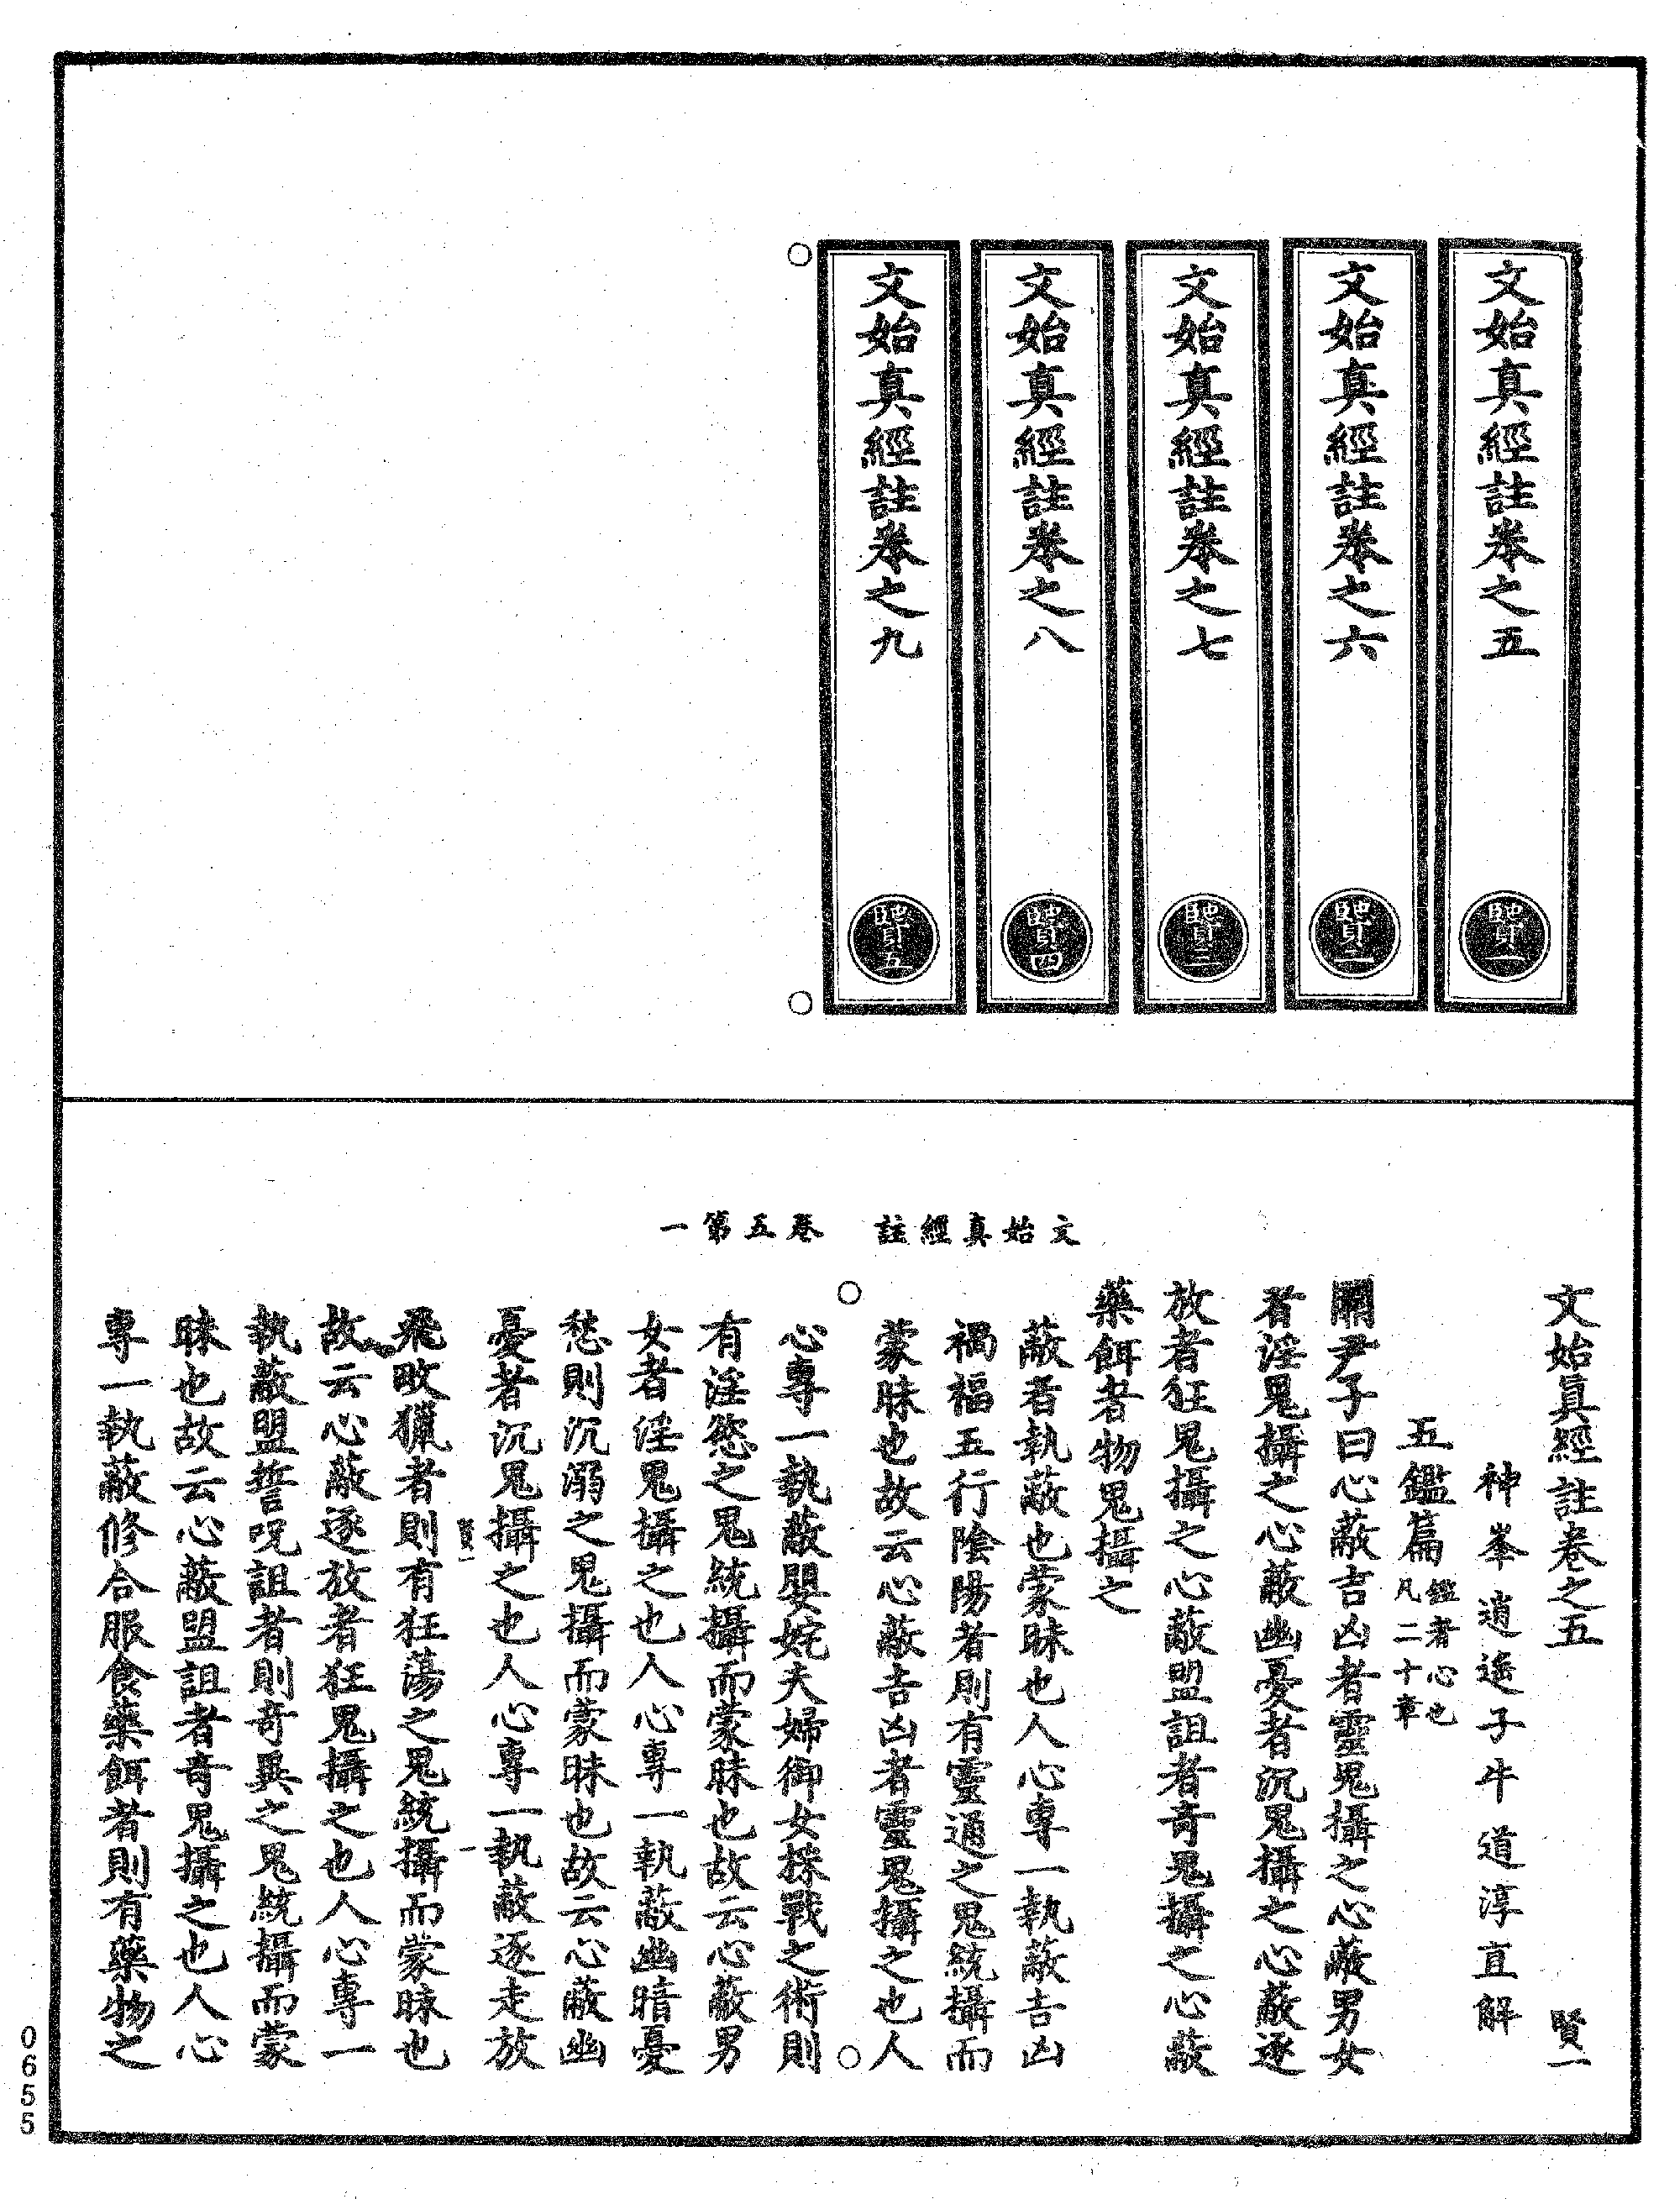 文始真經註卷之五
賢一
文始真經註卷之六
賢二
文始真經註卷之七
賢三
文始真經註卷之八
賢四
文始真經註卷之九
賢五
文始真經註　卷五第一
文始真經註卷之五　賢一
神峯逍遙子牛道淳直解
五鑑篇
鑑者心也
凡二十章
關尹子曰心蔽吉凶者靈鬼攝之心蔽男女
者淫鬼攝之心蔽幽憂者沉鬼攝之心蔽逐
放者狂鬼攝之心蔽盟詛者奇鬼攝之心蔽
藥餌者物鬼攝之
蔽者執蔽也蒙昧也人心專一執蔽吉凶
禍福五行陰陽者則有靈通之鬼統攝而
蒙昧也故云心蔽吉凶者靈鬼攝之也人
心專一執蔽嬰姹夫婦御女採戰之術則
有淫慾之鬼統攝而蒙昧也故云心蔽男
女者淫鬼攝之也人心專一執蔽幽暗憂
愁則沉溺之鬼攝而蒙昧也故云心蔽幽
憂者沉鬼攝之也人心專一執蔽逐走放
賢一
一
飛畋獵者則有狂蕩之鬼統攝而蒙昧也
故云心蔽逐放者狂鬼攝之也人心專一
執蔽盟誓呪詛者則奇異之鬼統攝而蒙
昧也故云心蔽盟詛者奇鬼攝之也人心
專一執蔽修合服食藥餌者則有藥物之
0655